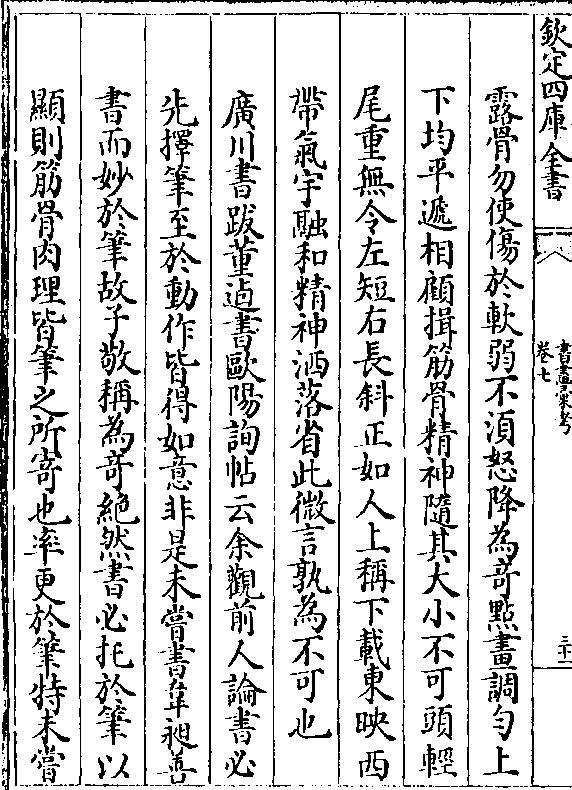 欽定四庫全書
書畫彙考
卷七
三十二
露骨勿使傷於軟弱不湏怒降為竒點畫調勻上
下均平遞相顧揖筋骨精神隨其大小不可頭輕
尾重無令左短右長斜正如人上稱下載東映西
帶氣宇融和精神洒落省此微言孰為不可也
廣川書跋董逌書歐陽詢帖云余觀前人論書必
先擇筆至於動作皆得如意非是未嘗書韋昶善
書而妙於筆故子敬稱為竒絶然書必托於筆以
顯則筋骨肉理皆筆之所寄也率更於筆特未嘗